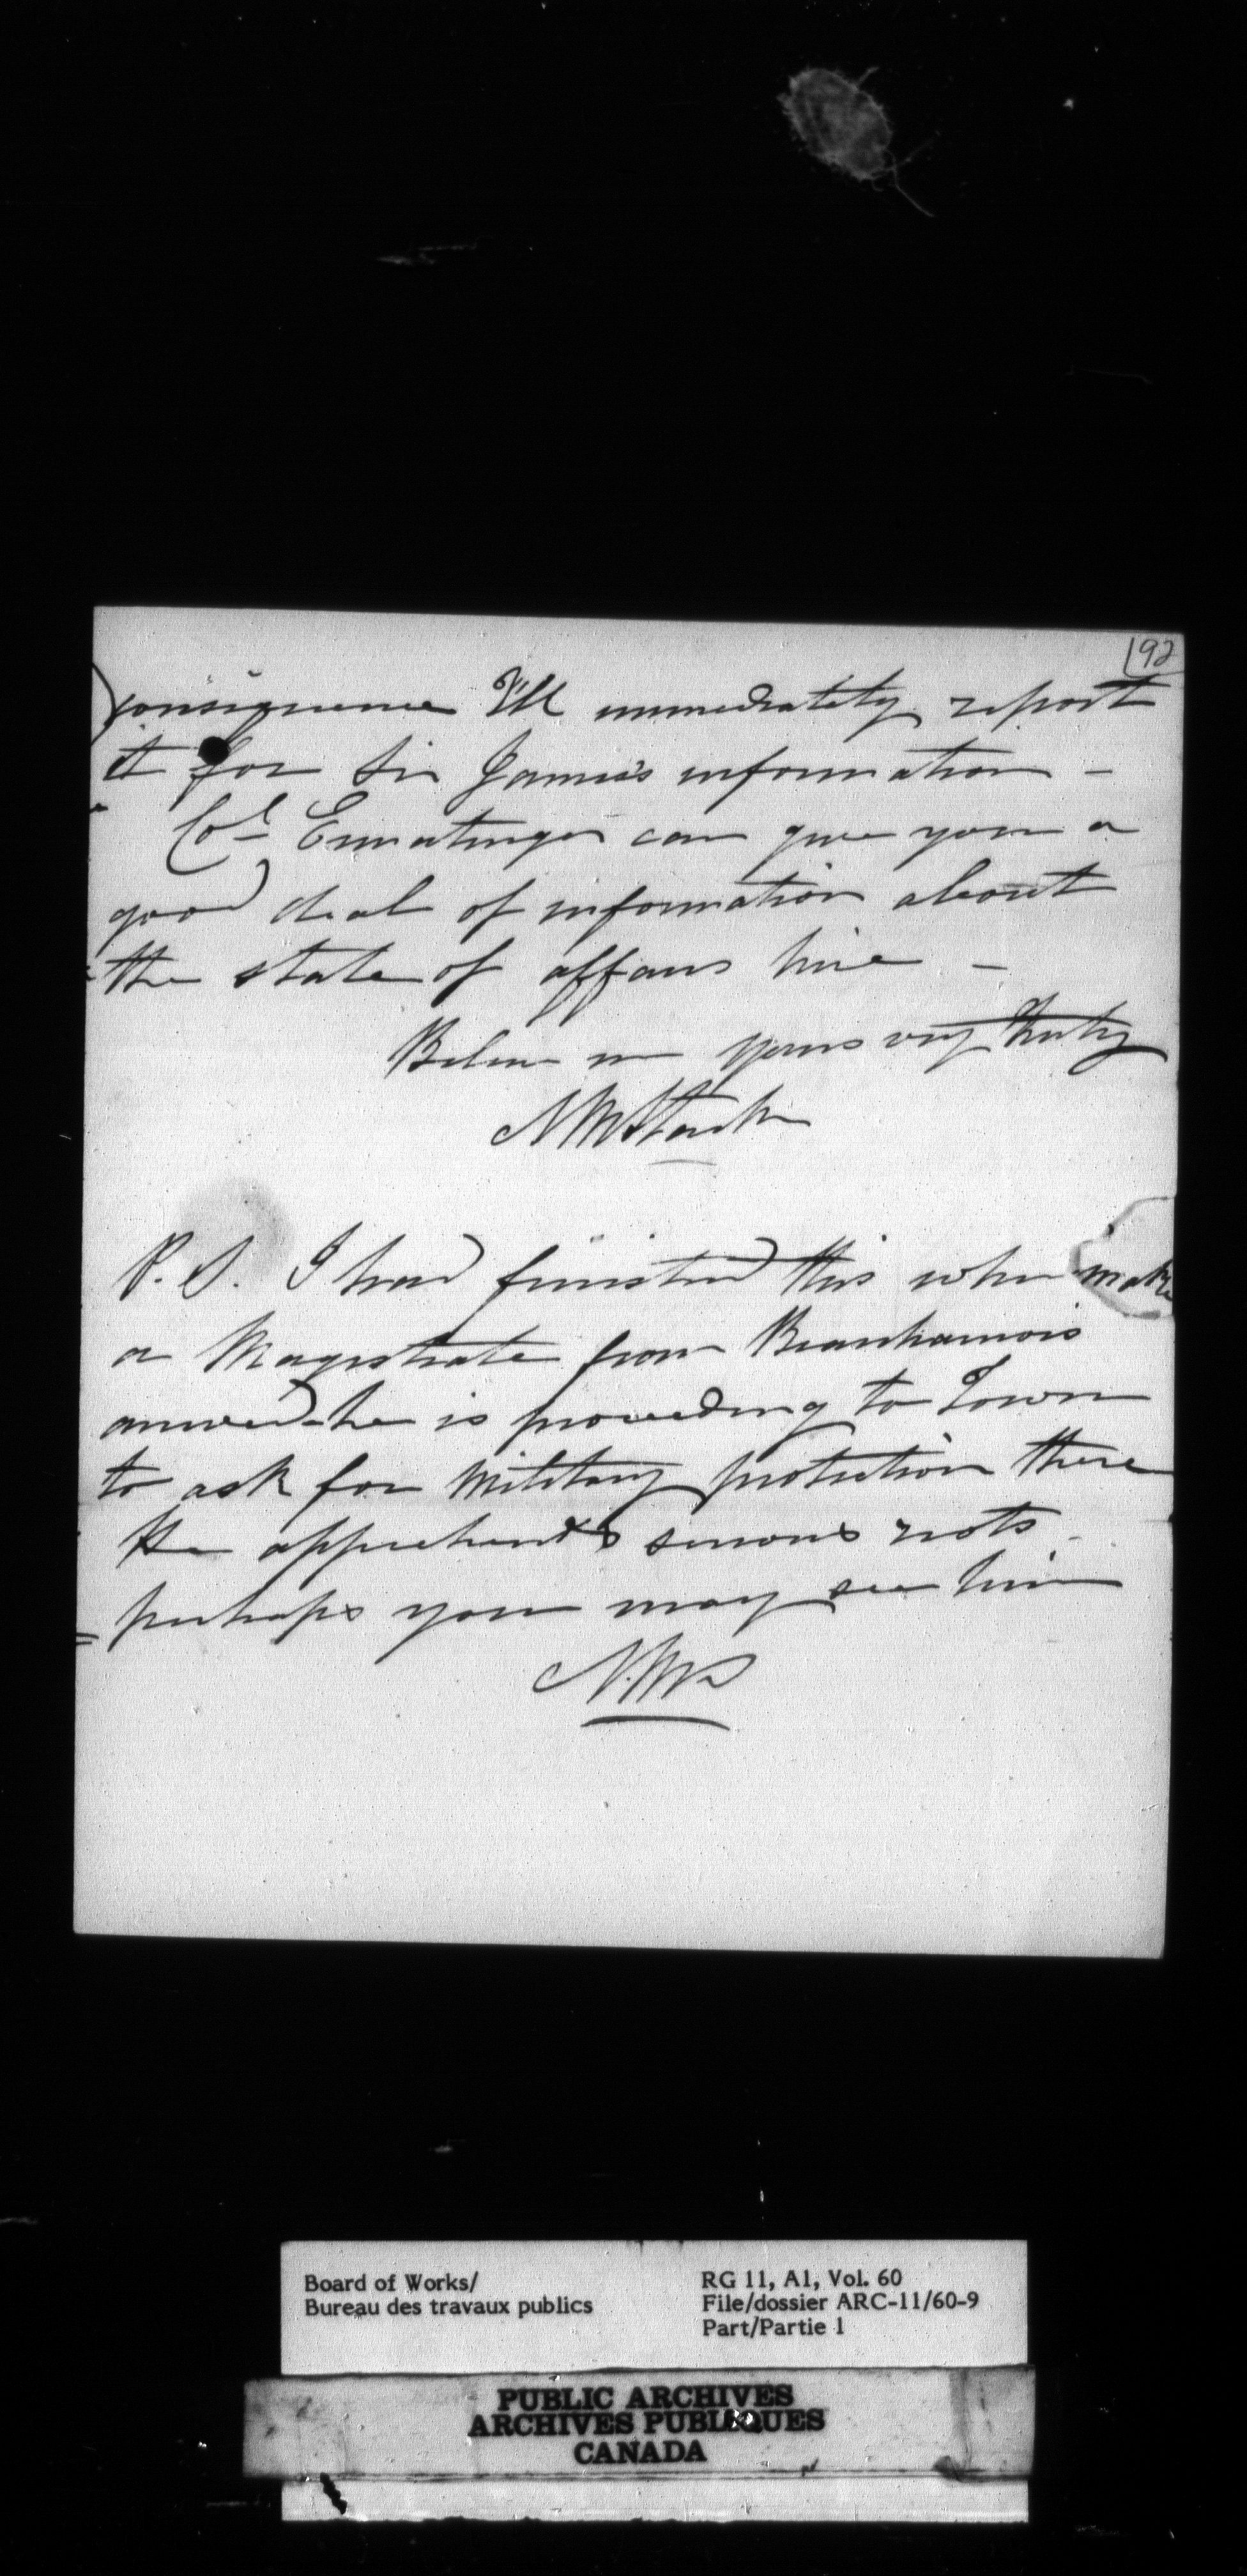 192
consequence I'll immediately report
it for Sir James's information –
Col Ermatinger can give you a
good deal of information about
the state of affairs here –
Believe me yours very truly
P.S. I had finished this when
a Magistrate from Beauharnois
arrived he is proceeding to Town
to ask for Military protection there
He apprehends serious riots –
perhaps you may see him
Board of Works/
Bureau des travaux publics
RG 11, A1, Vol. 60
File/dossier ARC-11/60-9
Part/Partie 1
PUBLIC ARCHIVES
ARCHIVES PUBLIQUES
CANADA